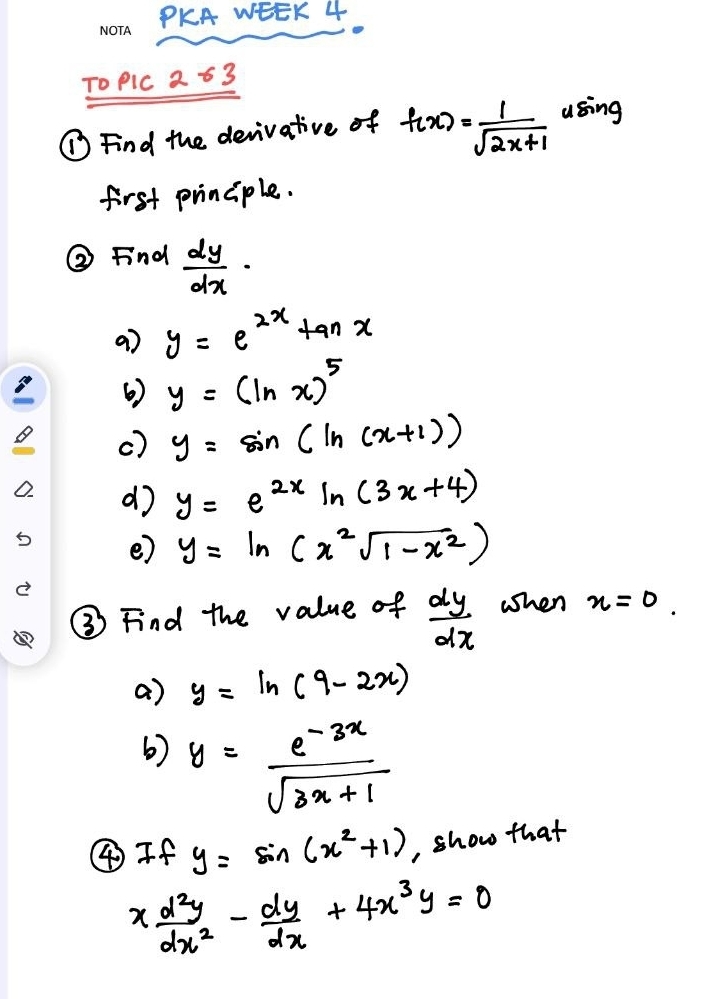 NOTA PKA WEEK 4.
TOPIC 2 & 3
① Find the derivative of f(x) = 1/√(2x+1) using
first principle.
② Find dy/dx.
a) y = e^(2x) tan x
b) y = (ln x)^5
c) y = sin (ln (x+1))
d) y = e^(2x) ln (3x+4)
e) y = ln (x²√(1-x²))
③ Find the value of dy/dx when x=0.
a) y = ln (9-2x)
b) y = e^(-3x)/√(3x+1)
④ If y = sin (x²+1), show that
x d²y/dx² - dy/dx + 4x³y = 0